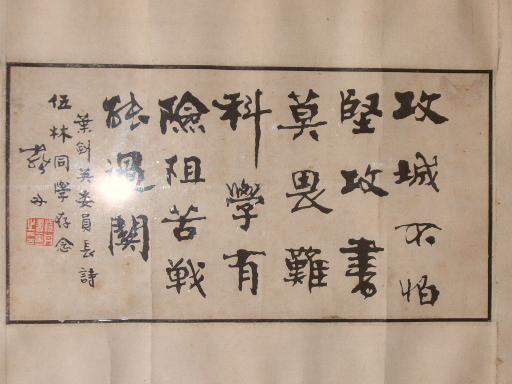 攻城不怕
堅攻書
莫畏難
科學有
險阻苦戰
能過關
葉剑英委員長詩
伍林同學存念